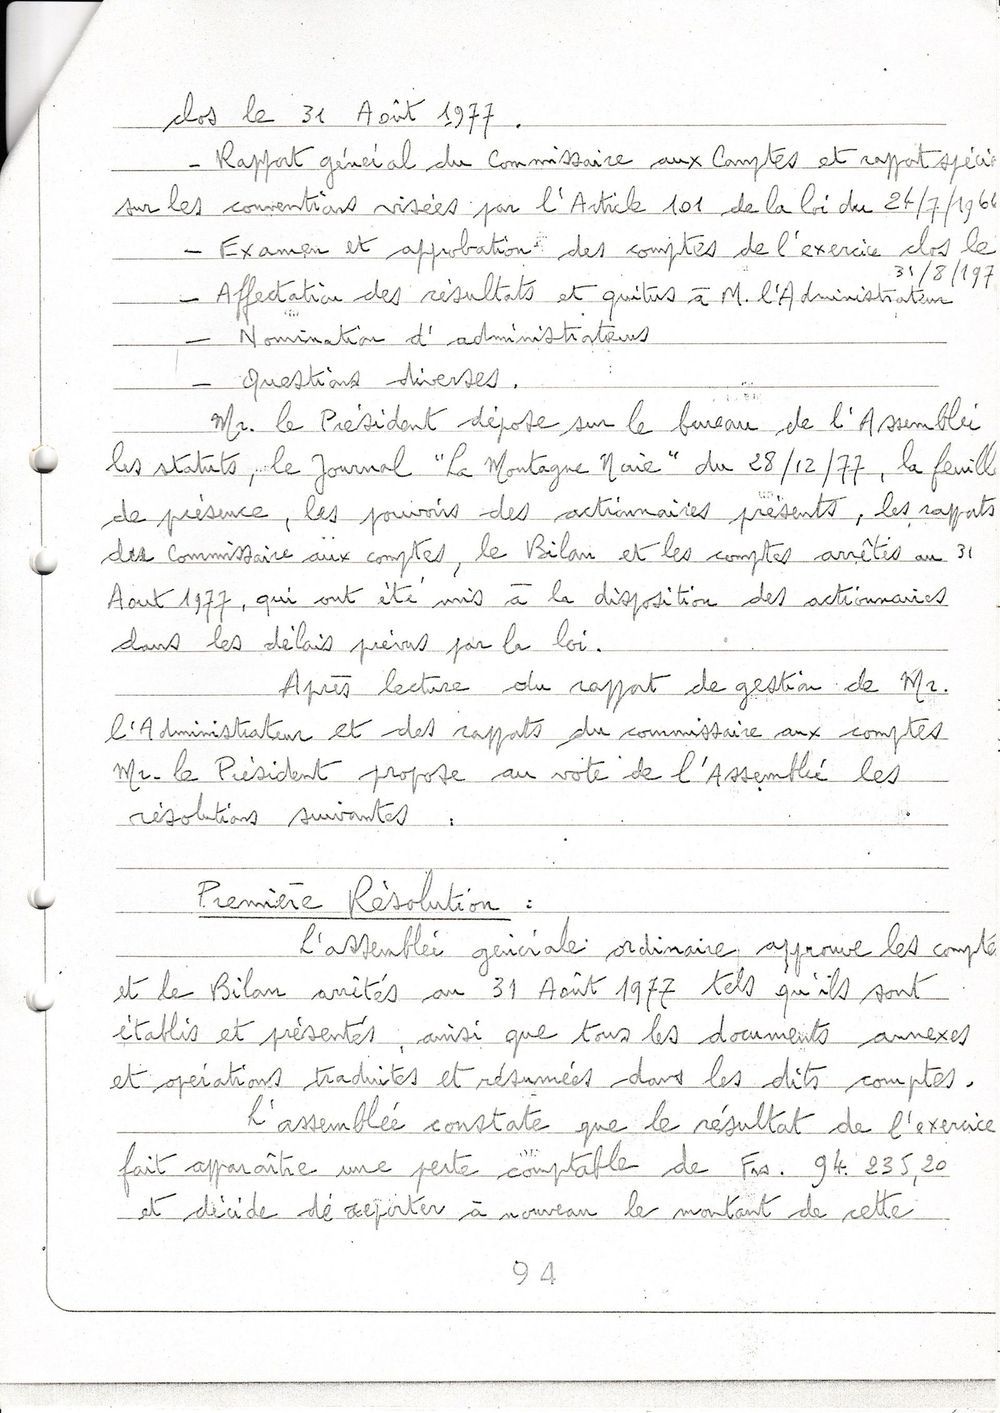 clos le 31 Août 1977.
- Rapport général du Commissaire aux Comptes et rapport spécia
sur les conventions visées par l'Article 101 de la loi du 24/7/1966
- Examen et approbation des comptes de l'exercice clos le
31/8/197
- Affectation des résultats et quitus à M. l'Administrateur
- Nomination d'administrateurs
- Questions diverses.
Mr. le Président dépose sur le bureau de l'Assemblée
les statuts, le Journal "La Montagne Noire" du 28/12/77, la feuill
de présence, les pouvoirs des actionnaires présents, les rapports
des Commissaire aux comptes, le Bilan et les comptes arrêtés au 31
Aout 1977, qui ont été mis à la disposition des actionnaires
dans les délais prévus par la loi.
Après lecture du rapport de gestion de Mr.
l'Administrateur et des rapports du commissaire aux comptes
Mr. le Président propose au vote de l'Assemblée les
résolutions suivantes :
Première Résolution :
L'assemblée générale ordinaire approuve les compte
et le Bilan arrêtés au 31 Août 1977 tels qu'ils sont
établis et présentés, ainsi que tous les documents annexes
et opérations traduites et résumées dans les dits comptes.
L'assemblée constate que le résultat de l'exercice
fait apparaître une perte comptable de Frs. 94.235,20
et décide de reporter à nouveau le montant de cette
94